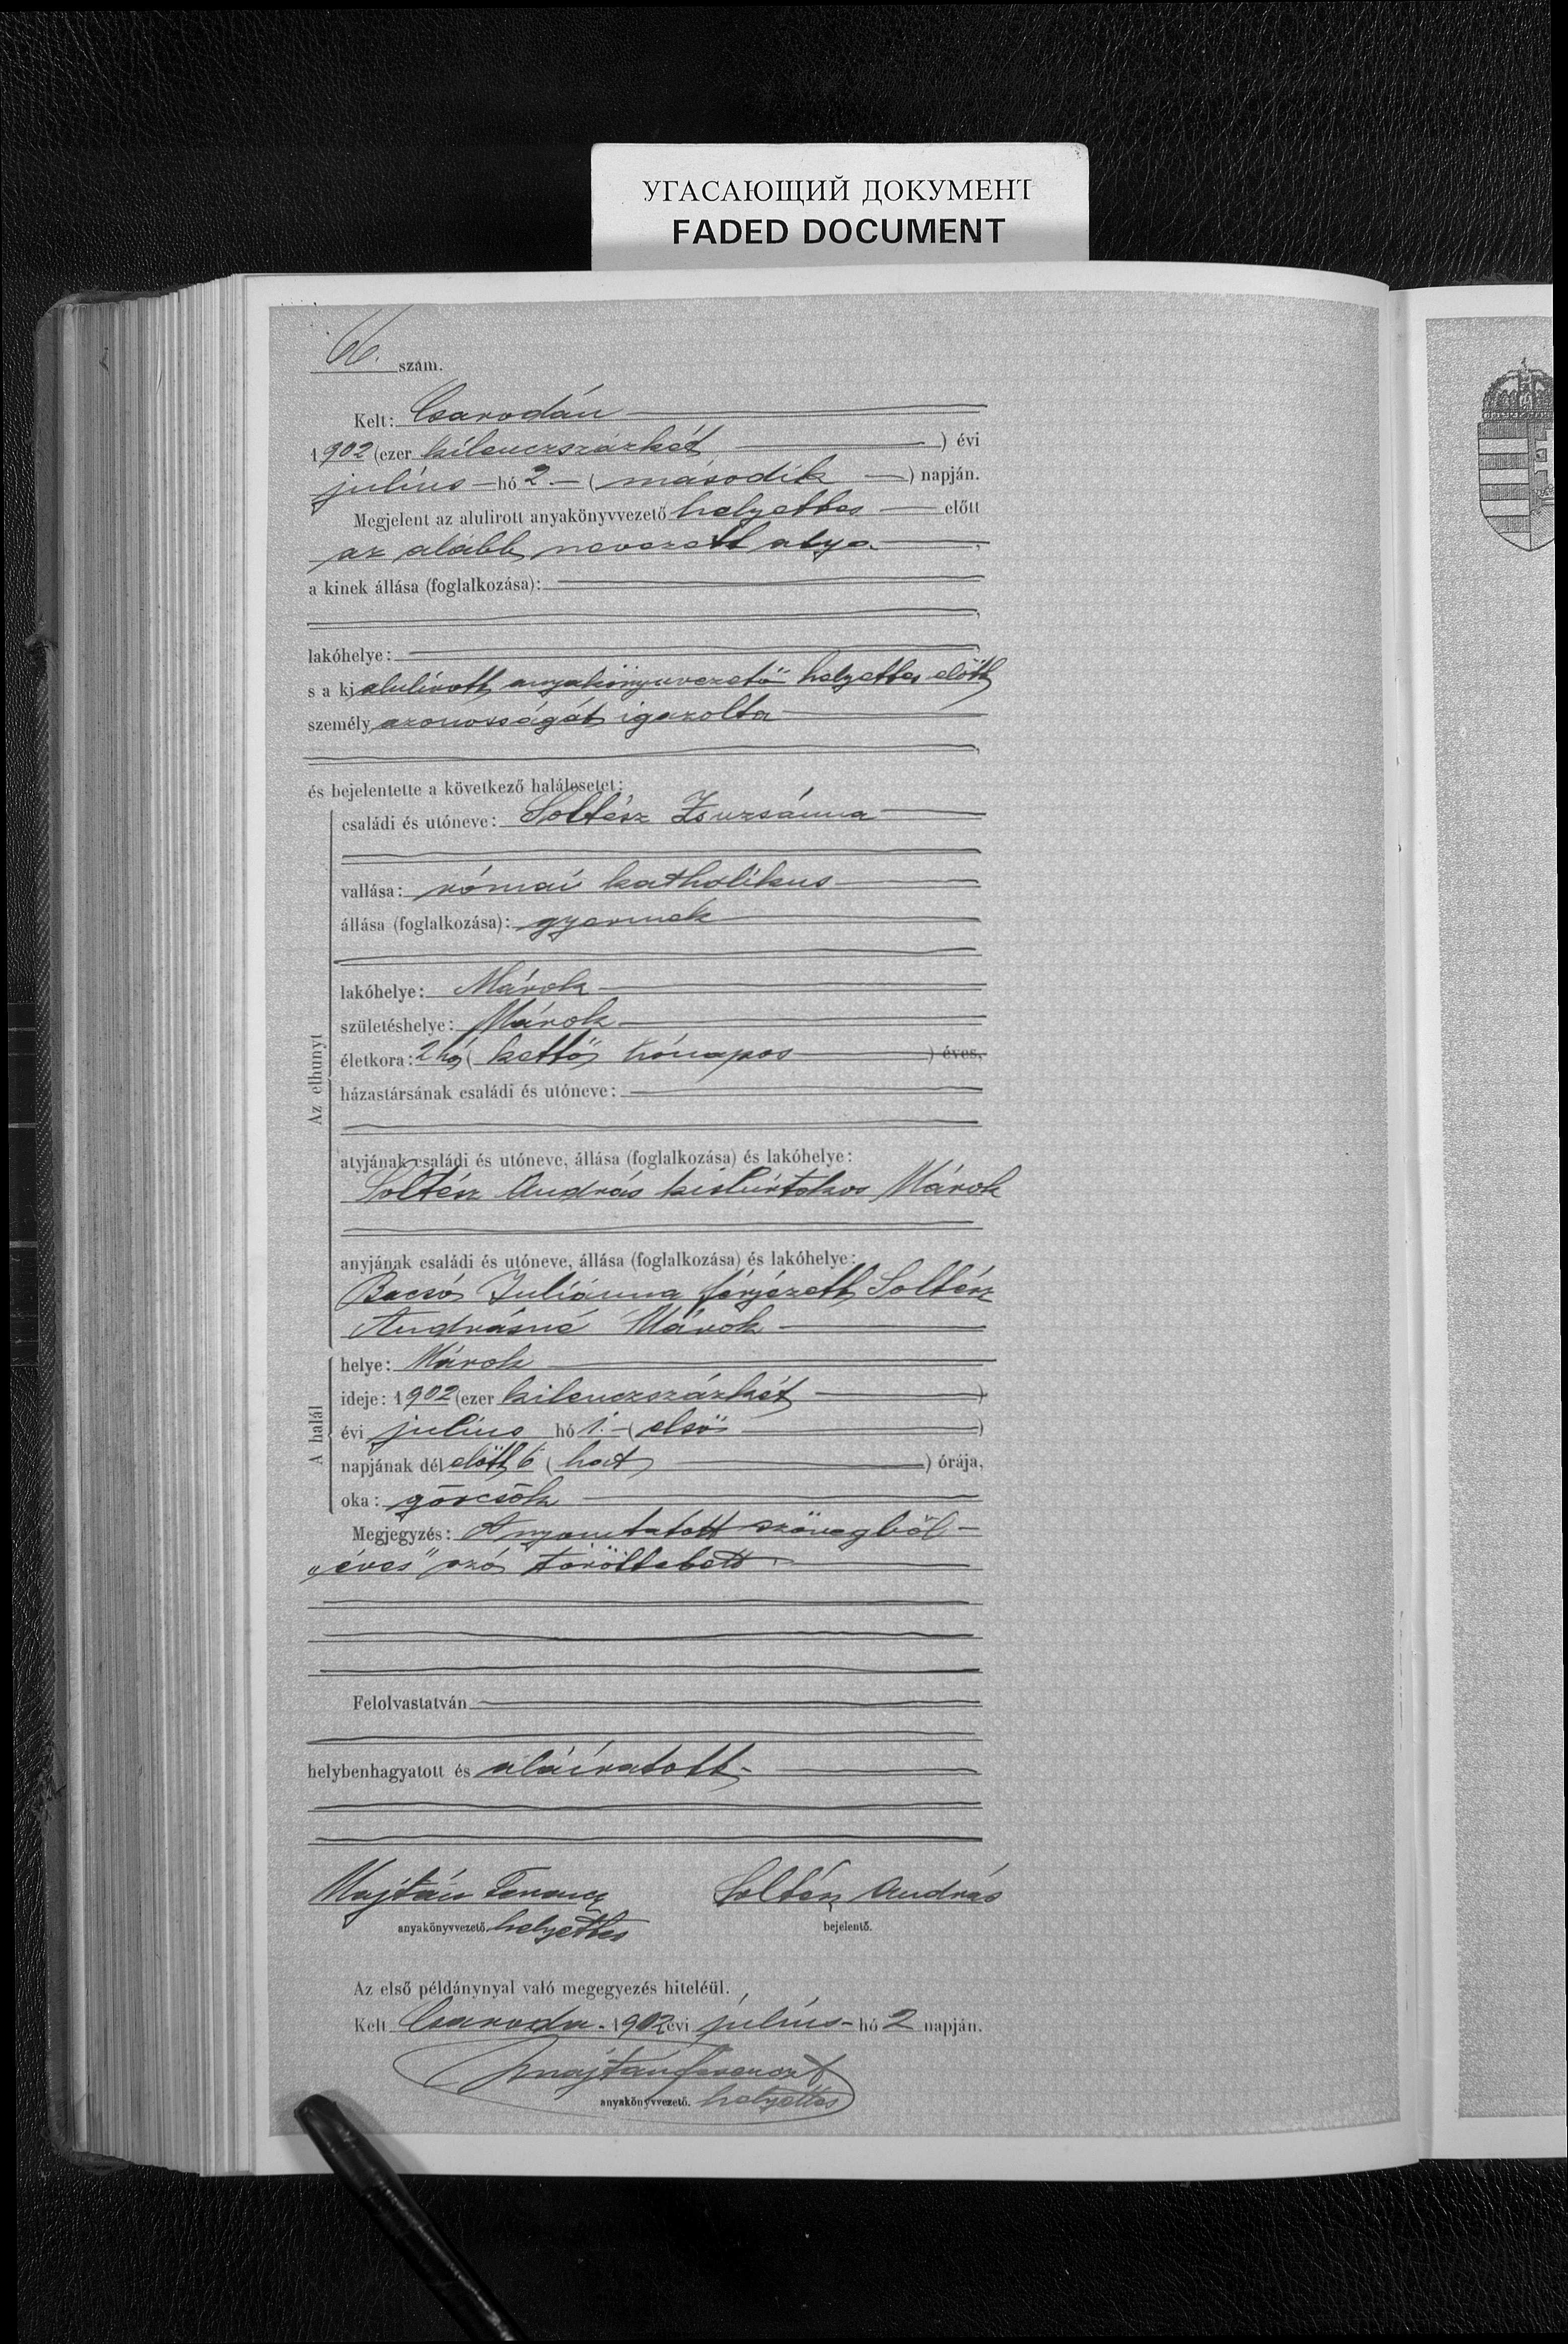 УГАСАЮЩИЙ ДОКУМЕНТ
FADED DOCUMENT
66. szám.
Kelt: Csarodán
1902 (ezer kilenczszázkét ) évi
július hó 2 (második ) napján.
Megjelent az alulirott anyakönyvvezető helyettes előtt
az alább nevezett atya
a kinek állása (foglalkozása):
lakóhelye:
s a ki alulírott anyakönyvvezető helyettes előtt
személyazonosságát igazolta
és bejelentette a következő halálesetet:
Az elhunyt
családi és utóneve: Soltész Zsuzsánna
vallása: római katholikus
állása (foglalkozása): gyermek
lakóhelye: Márok
születéshelye: Márok
életkora: 2 hó (kettő hónapos ) éves,
házastársának családi és utóneve:
atyjának családi és utóneve, állása (foglalkozása) és lakóhelye:
Soltész András kisbirtokos Márok
anyjának családi és utóneve, állása (foglalkozása) és lakóhelye:
Bacsó Juliánna férjezett Soltész
Andrásné Márok
A halál
helye: Márok
ideje: 1902 (ezer kilenczszázkét )
évi július hó 1. (első )
napjának dél előtt 6 (hat ) órája,
oka: görcsök
Megjegyzés: A nyomtatott szövegből
„éves" szó töröltetett.
Felolvastatván
helybenhagyatott és aláíratott.
Majtán Ferencz Soltész András
anyakönyvvezető helyettes bejelentő.
Az első példánynyal való megegyezés hiteléül.
Kelt Csaroda 1902 évi július hó 2 napján.
Majtán Ferencz
anyakönyvvezető. helyettes